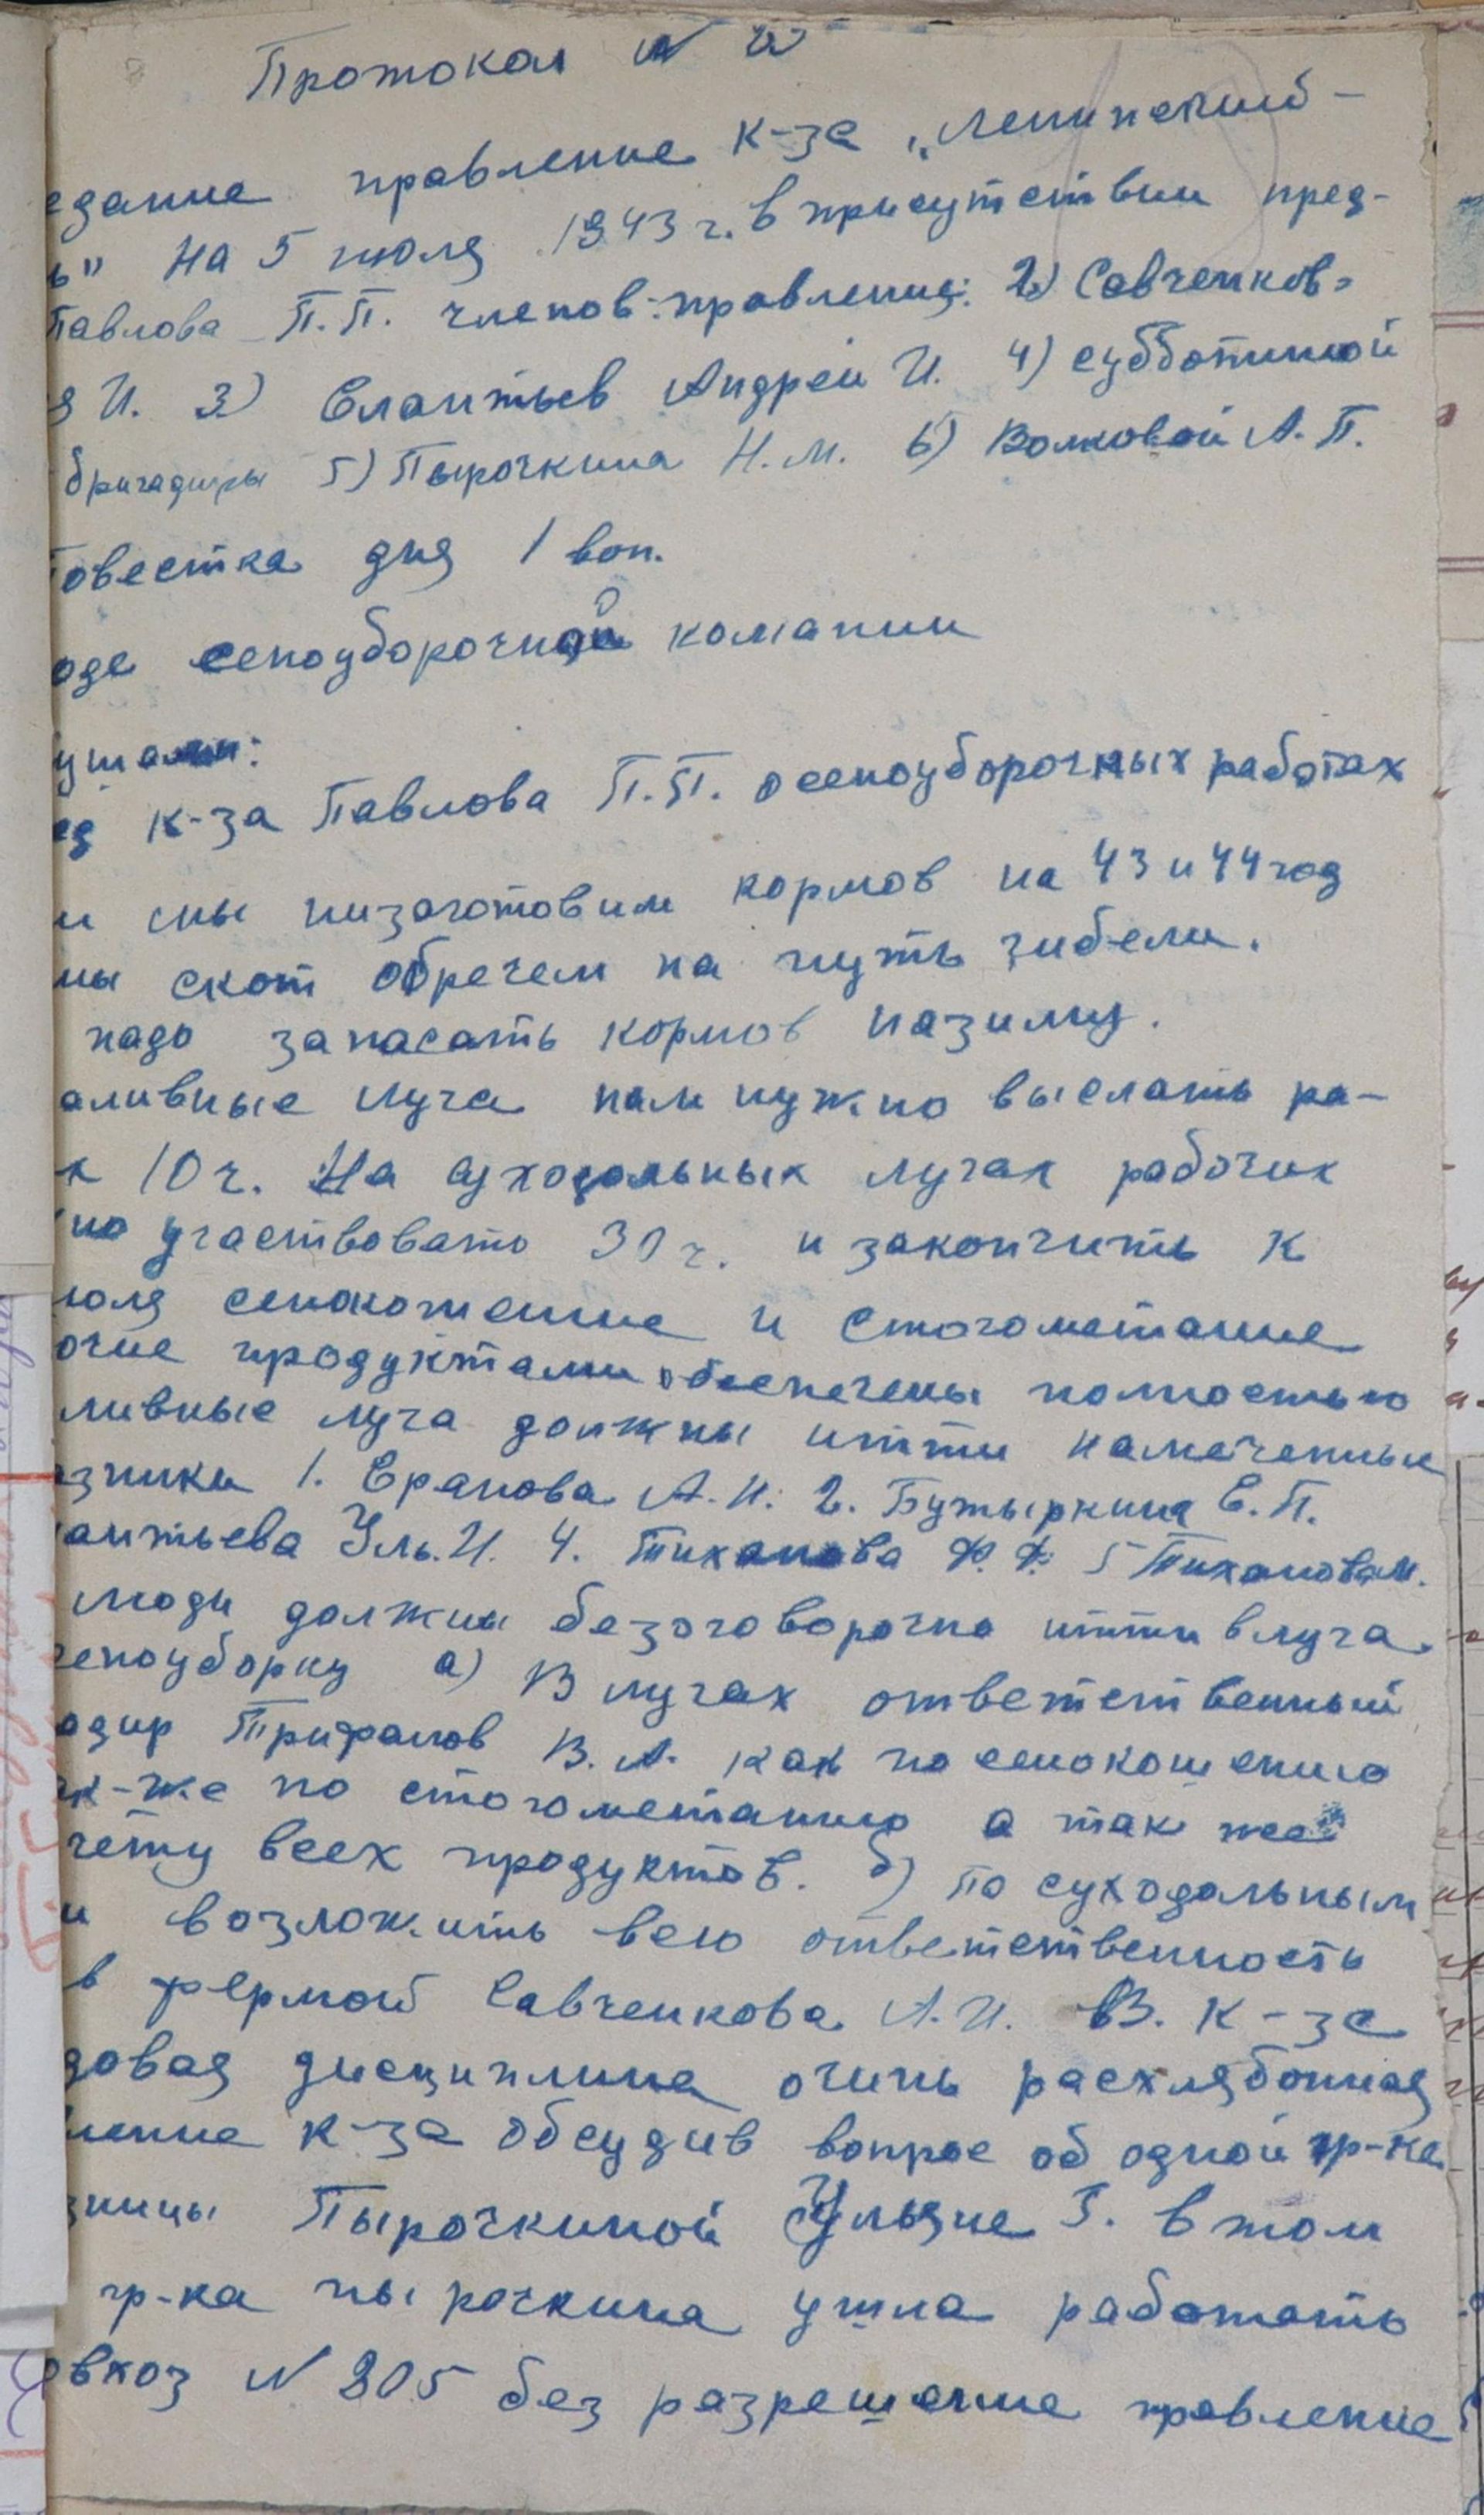 Протокол №
едание правление к-за „Ленинский-
ь" На 5 июля 1943 г. в присутствии пред-
Павлова П.П. членов: правления: 2) Савченков-
я И. 3) Елантьев Андрей И. 4) Субботиной
бригадиры 5) Пырочкина Н.М. 6) Волковой А.П.
овестка дня 1 воп.
оде сеноуборочной компании
ушали:
ед к-за Павлова П.П. о сеноуборочных работах
и мы низаготовим кормов на 43 и 44 год
мы скот обречем на путь гибели.
надо запасать кормов назиму.
аливные луга нам нужно выслать ра-
х 10 ч. На суходольных лугах рабочих
но участвовать 30 ч. и закончить к
юля сенокошение и стогометание
очие продуктами обеспечены полностью
ливные луга должны итти намеченные
озники 1. Еранова А.И. 2. Бутыркина Е.П.
антьева Уль.И. 4. Тиханова Ф.Ф. 5 Тиханова М.
люди должны безоговорочно итти в луга
сеноуборку а) В лугах ответственный
адир Трифалов В.А. как по сенокошению
ак-же по стогометанию а так же
чёту всех продуктов. б) по суходольным
и возложить всю ответственность
в фермой Савченкова А.И. В. к-зе
довая дисциплина очинь расхлябонная
ление к-за обсудив вопрос об одной гр-ке
зницы Пырочкиной Ульяне З. в том
гр-ка пырочкина ушла работать
овхоз № 805 без разрешение правление